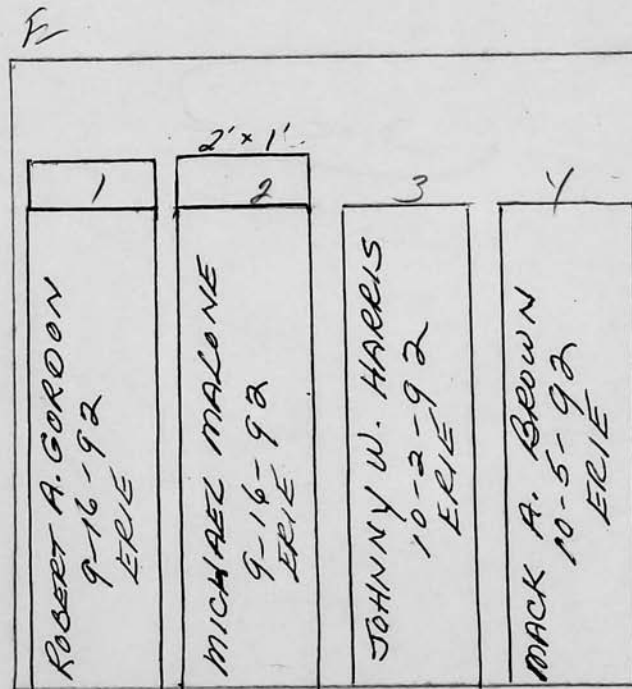 2' x 1'
1
ROBERT A. GORDON
9-16-92
ERIE
2
MICHAEL MALONE
9-16-92
ERIE
3
JOHNNY W. HARRIS
10-2-92
ERIE
4
MACK A. BROWN
10-5-92
ERIE